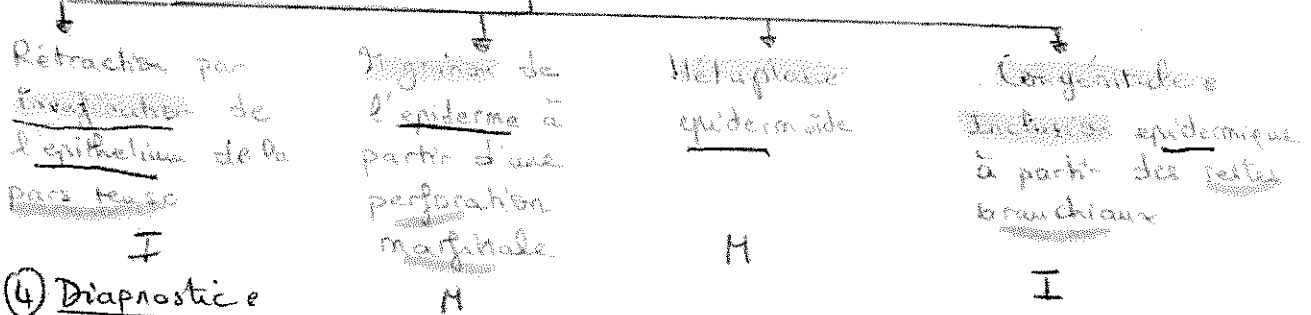 Rétraction par
Invagination de
l'épithelium de la
pars tensa
I
Migration de
l'epiderme à
partir d'une
perforation
marginale
M
Métaplasie
epidermoïde
M
Congénitale
Inclusion epidermique
à partir des restes
branchiaux
I
④ Diagnostic